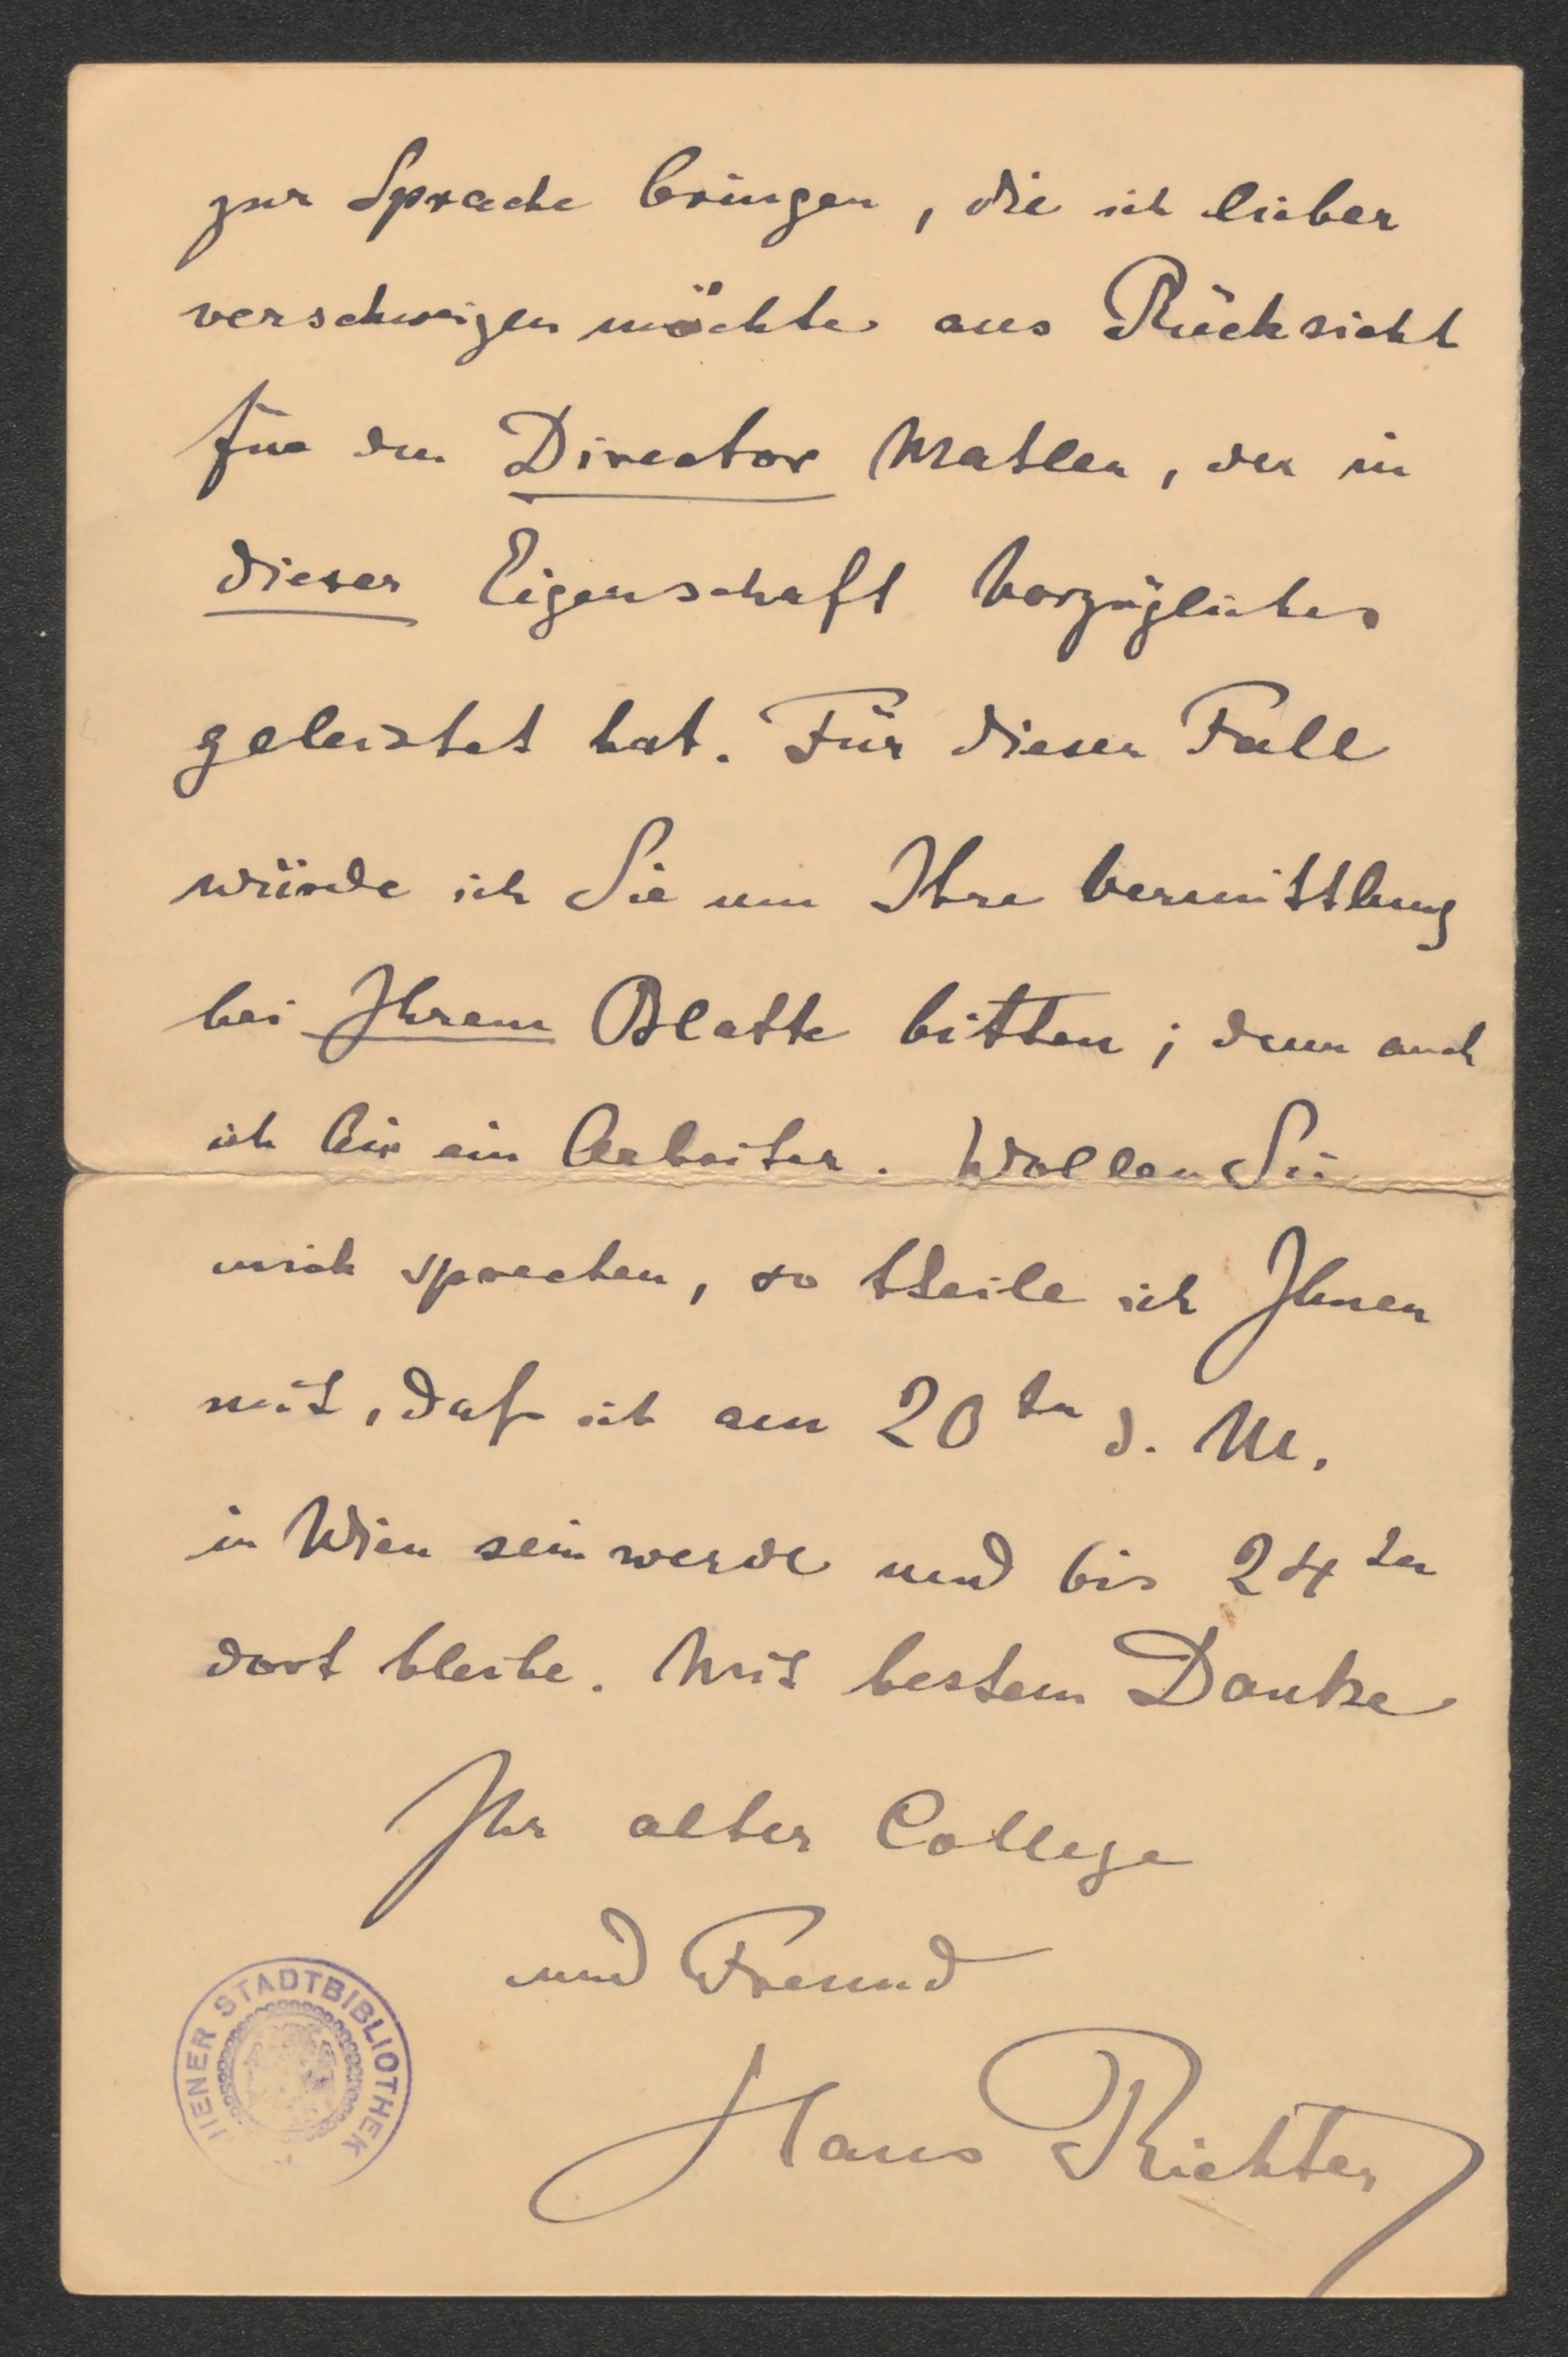 zur Sprache bringen, die ich lieber
verschweigen möchte aus Rücksicht
für den Director Mahler, der in
dieser Eigenschaft Vorzügliches
geleistet hat. Für diesen Fall
würde ich Sie um Ihre Vermittlung
bei Ihrem Blatte bitten; denn auch
ich bin ein Arbeiter. Wollen Sie
mich sprechen, so theile ich Ihnen
mit, daß ich am 20ten d. M.
in Wien sein werde und bis 24ten
dort bleibe. Mit bestem Danke
Ihr alter College
und Freund
Hans Richter
IENER STADTBIBLIOTHEK